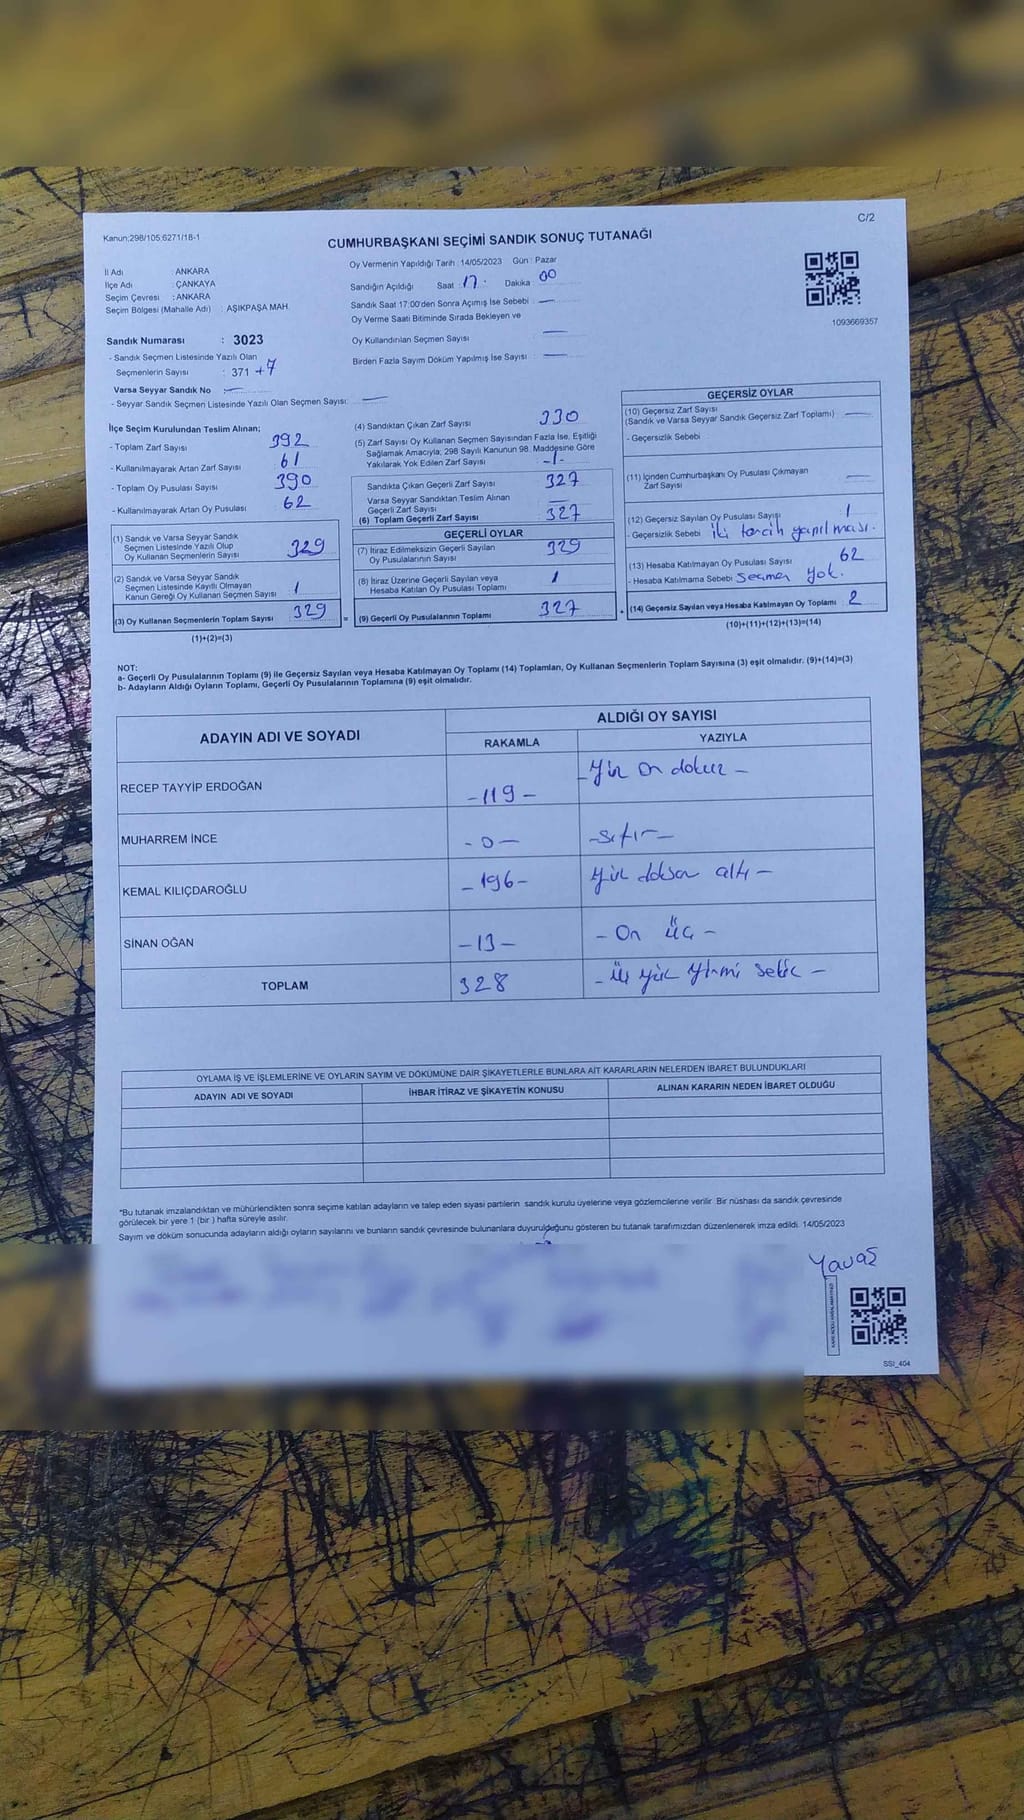 C/2
Kanun;298/105;6271/18-1
CUMHURBAŞKANI SEÇİMİ SANDIK SONUÇ TUTANAĞI
İl Adı : ANKARA
İlçe Adı : ÇANKAYA
Seçim Çevresi : ANKARA
Seçim Bölgesi (Mahalle Adı) : AŞIKPAŞA MAH.
Oy Vermenin Yapıldığı Tarih : 14/05/2023 Gün : Pazar
Sandığın Açıldığı Saat : 17 . Dakika : 00
Sandık Saat 17:00'den Sonra Açımış İse Sebebi : —
Oy Verme Saati Bitiminde Sırada Bekleyen ve
Oy Kullandırılan Seçmen Sayısı —
Birden Fazla Sayım Döküm Yapılmış İse Sayısı : —
1093669357
Sandık Numarası : 3023
- Sandık Seçmen Listesinde Yazılı Olan
Seçmenlerin Sayısı : 371 +7
Varsa Seyyar Sandık No : —
- Seyyar Sandık Seçmen Listesinde Yazılı Olan Seçmen Sayısı: —
İlçe Seçim Kurulundan Teslim Alınan;
- Toplam Zarf Sayısı 392
- Kullanılmayarak Artan Zarf Sayısı 61
- Toplam Oy Pusulası Sayısı 390
- Kullanılmayarak Artan Oy Pusulası 62
(1) Sandık ve Varsa Seyyar Sandık
Seçmen Listesinde Yazılı Olup
Oy Kullanan Seçmenlerin Sayısı 329
(2) Sandık ve Varsa Seyyar Sandık
Seçmen Listesinde Kayıtlı Olmayan
Kanun Gereği Oy Kullanan Seçmen Sayısı 1
(3) Oy Kullanan Seçmenlerin Toplam Sayısı 329 =
(1)+(2)=(3)
(4) Sandıktan Çıkan Zarf Sayısı 330
(5) Zarf Sayısı Oy Kullanan Seçmen Sayısından Fazla İse, Eşitliği
Sağlamak Amacıyla; 298 Sayılı Kanunun 98. Maddesine Göre
Yakılarak Yok Edilen Zarf Sayısı -1-
Sandıkta Çıkan Geçerli Zarf Sayısı 327
Varsa Seyyar Sandıktan Teslim Alınan
Geçerli Zarf Sayısı —
(6) Toplam Geçerli Zarf Sayısı 327
GEÇERLİ OYLAR
(7) İtiraz Edilmeksizin Geçerli Sayılan
Oy Pusulalarının Sayısı 329
(8) İtiraz Üzerine Geçerli Sayılan veya
Hesaba Katılan Oy Pusulası Toplamı 1
(9) Geçerli Oy Pusulalarının Toplamı 327 +
GEÇERSİZ OYLAR
(10) Geçersiz Zarf Sayısı
(Sandık ve Varsa Seyyar Sandık Geçersiz Zarf Toplamı) —
- Geçersizlik Sebebi
(11) İçinden Cumhurbaşkanı Oy Pusulası Çıkmayan
Zarf Sayısı —
(12) Geçersiz Sayılan Oy Pusulası Sayısı 1
- Geçersizlik Sebebi iki tercih yapılması.
(13) Hesaba Katılmayan Oy Pusulası Sayısı 62
- Hesaba Katılmama Sebebi Seçmen yok.
(14) Geçersiz Sayılan veya Hesaba Katılmayan Oy Toplamı 2
(10)+(11)+(12)+(13)=(14)
NOT:
a- Geçerli Oy Pusulalarının Toplamı (9) ile Geçersiz Sayılan veya Hesaba Katılmayan Oy Toplamı (14) Toplamları, Oy Kullanan Seçmenlerin Toplam Sayısına (3) eşit olmalıdır. (9)+(14)=(3)
b- Adayların Aldığı Oyların Toplamı, Geçerli Oy Pusulalarının Toplamına (9) eşit olmalıdır.
ADAYIN ADI VE SOYADI
ALDIĞI OY SAYISI
RAKAMLA YAZIYLA
RECEP TAYYİP ERDOĞAN -119- -Yüz on dokuz -
MUHARREM İNCE -0- -sıfır-
KEMAL KILIÇDAROĞLU -196- Yüz doksan altı -
SİNAN OĞAN -13- - On üç -
TOPLAM 328 - Üç yüz Yirmi sekiz -
OYLAMA İŞ VE İŞLEMLERİNE VE OYLARIN SAYIM VE DÖKÜMÜNE DAİR ŞİKAYETLERLE BUNLARA AİT KARARLARIN NELERDEN İBARET BULUNDUKLARI
ADAYIN ADI VE SOYADI İHBAR İTİRAZ VE ŞİKAYETİN KONUSU ALINAN KARARIN NEDEN İBARET OLDUĞU
*Bu tutanak imzalandıktan ve mühürlendikten sonra seçime katılan adayların ve talep eden siyasi partilerin sandık kurulu üyelerine veya gözlemcilerine verilir. Bir nüshası da sandık çevresinde
görülecek bir yere 1 (bir ) hafta süreyle asılır.
Sayım ve döküm sonucunda adayların aldığı oyların sayılarını ve bunların sandık çevresinde bulunanlara duyurulduğunu gösteren bu tutanak tarafımızdan düzenlenerek imza edildi. 14/05/2023
Yavaş
SSI_404